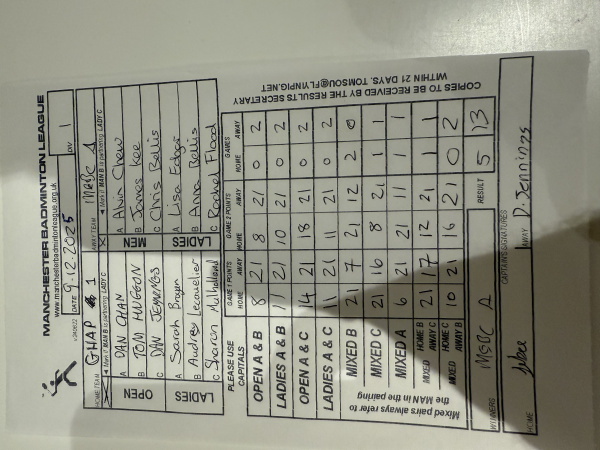 MANCHESTER BADMINTON LEAGUE
www.manchesterbadmintonleague.org.uk
DATE 9.12.2025 DIV 1
HOME TEAM GHAP 1 AWAY TEAM MSBC A
Mark if MAN B is partnering LADY C Mark if MAN B is partnering LADY C
OPEN A DAN CHAN MEN A Alvin Chew
B TOM HAUGEON B James Kee
C DAN JENNINGS C Chris Bellis
LADIES A Sarah Brown LADIES A Lisa
B Audrey Lecouvelier B Anna Bellis
C Sharon Mulholland C Rachel Flood
PLEASE USE CAPITALS GAME 1 POINTS GAME 2 POINTS GAMES
HOME AWAY HOME AWAY HOME AWAY
OPEN A & B 8 21 8 21 0 2
LADIES A & B 11 21 10 21 0 2
OPEN A & C 14 21 18 21 0 2
LADIES A & C 11 21 11 21 0 2
MIXED B 21 7 21 12 2 0
MIXED C 21 16 8 21 1 1
MIXED A 6 21 21 11 1 1
MIXED HOME B AWAY C 21 17 12 21 1 1
MIXED HOME C AWAY B 10 21 16 21 0 2
Mixed pairs always refer to the MAN in the pairing
WINNERS MSBC A RESULT 5 13
CAPTAINS SIGNATURES
HOME AWAY D. Jennings
COPIES TO BE RECEIVED BY THE RESULTS SECRETARY
WITHIN 21 DAYS. TOMSOU@FLYNPIG.NET